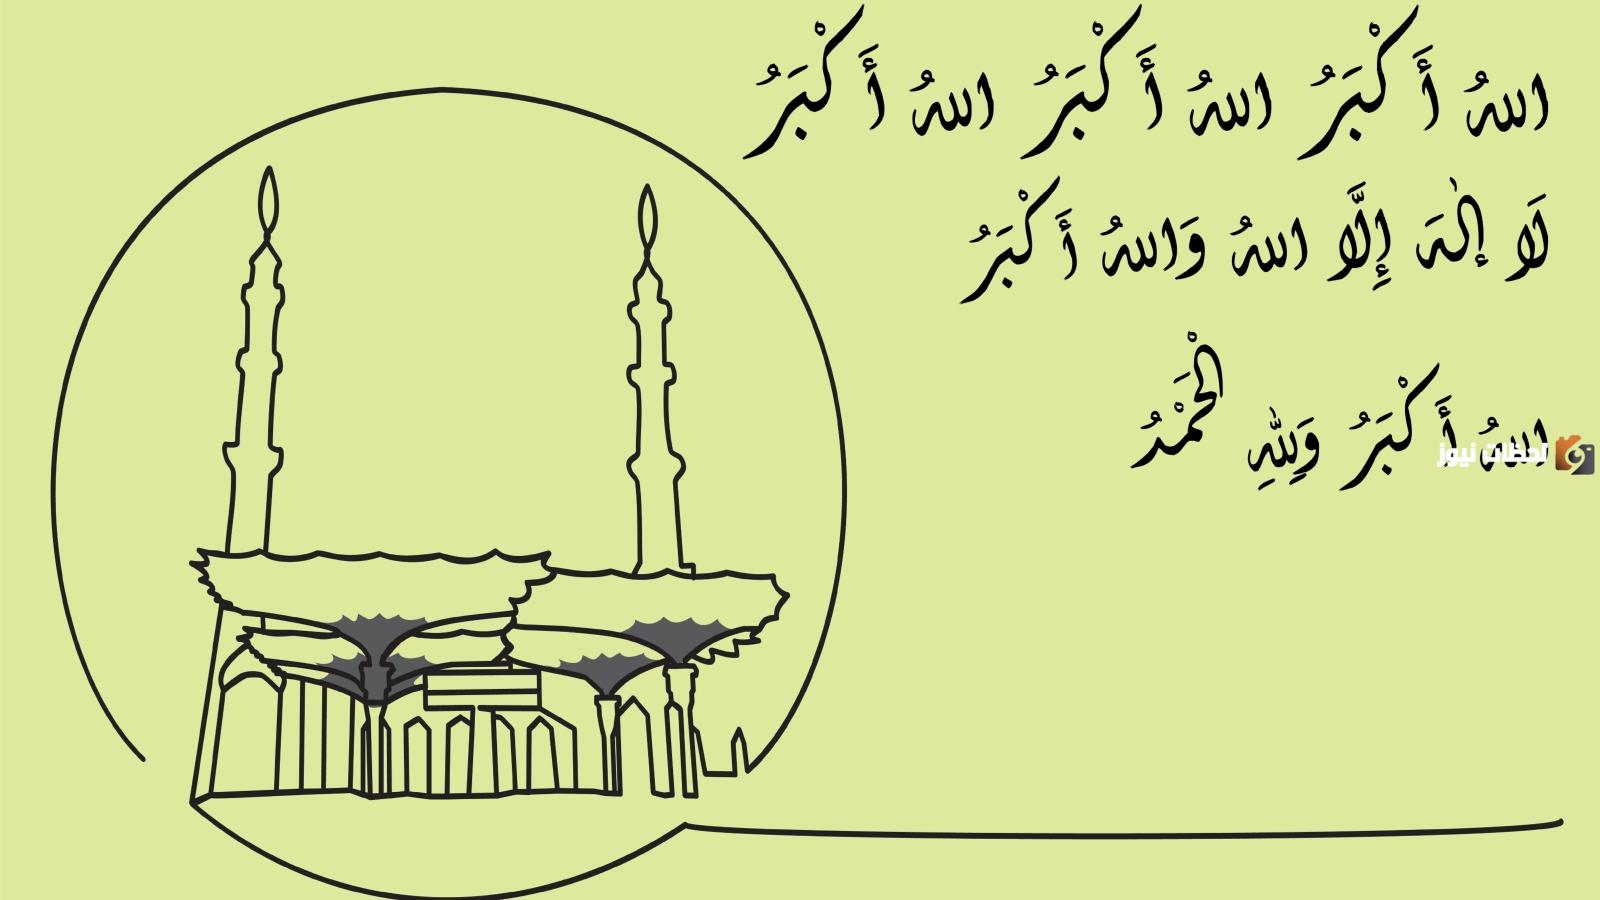 اللهُ أَكْبَرُ اللهُ أَكْبَرُ اللهُ أَكْبَرُ
لَا إِلٰهَ إِلَّا اللهُ وَاللهُ أَكْبَرُ
اللهُ أَكْبَرُ وَلِلّٰهِ الْحَمْدُ
لحظات نيوز